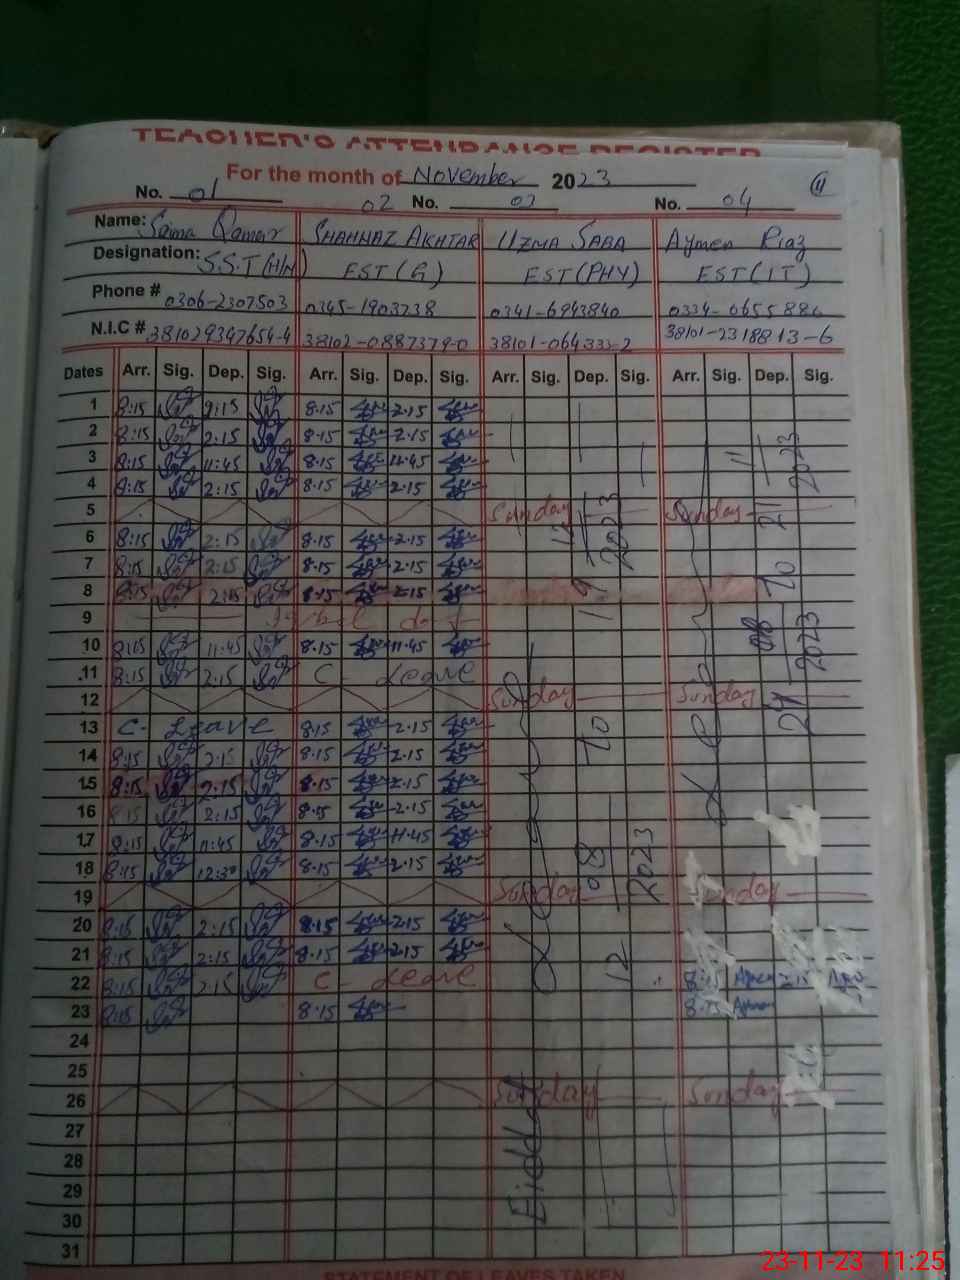 TEACHER'S ATTENDANCE REGISTER
For the month of November 2023 11
No. 01 02 No. 03 No. 04
Name: Saima Qamar SHAHNAZ AKHTAR UZMA SABA Aymen Riaz
Designation: S.S.T (H/M) EST(G) EST(PHY) EST(IT)
Phone # 0306-2307503 0345-1903738 0341-6943840 0334-0655886
N.I.C # 38102-0887379-0 38101-2318813-6
Dates Arr. Sig. Dep. Sig. Arr. Sig. Dep. Sig. Arr. Sig. Dep. Sig. Arr. Sig. Dep. Sig.
1 8:15 2:15 8.15 2.15
2 8:15 2:15 8.15 2.15
3 8:15 11:45 8.15 11.45
4 8:15 2:15 8.15 2.15
5 Sunday Sunday
6 8:15 2:15 8.15 2.15
7 8:15 2:15 8.15 2.15
8 8:15 2:15 8.15 2.15
9 Iqbal day
10 8:15 11:45 8.15 11.45
11 8:15 2:15 C- Leave
12 Sunday Sunday
13 C- Leave 8.15 2.15
14 8:15 2:15 8.15 2.15
15 8:15 2:15 8.15 2.15
16 8:15 2:15 8.15 2.15
17 8:15 11:45 8.15 11.45
18 8:15 12:30 8.15 2.15
19 Sunday Sunday
20 8:15 2:15 8.15 2.15
21 8:15 2:15 8.15 2.15
22 8:15 2:15 C- Leave 8:15 Aymen 2:15
23 8:15 8.15 8:15 Aymen
24
25
26 Sunday Sunday
27
28
29
30
31
08
2023
12
2023
2023
2023
STATEMENT OF LEAVES TAKEN
23-11-23 11:25